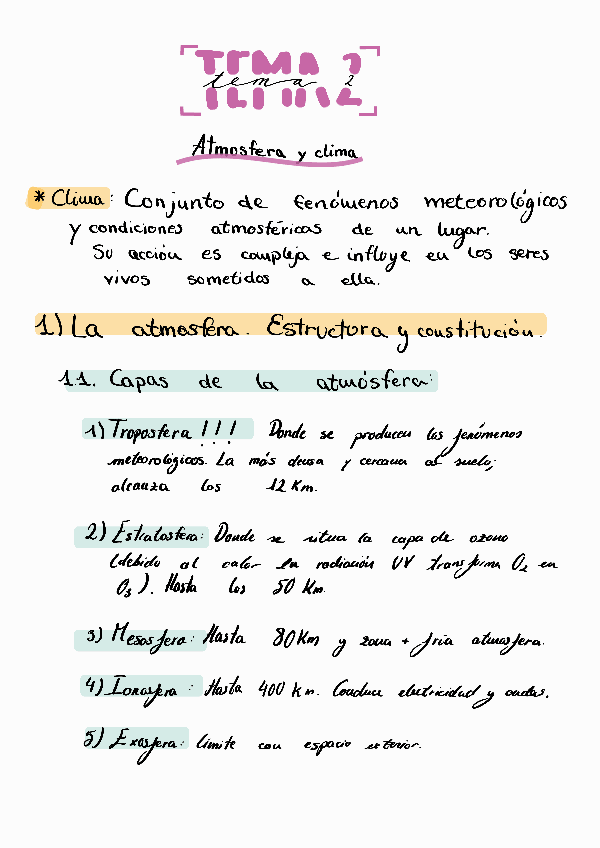 TEMA 2
tema 2
Atmosfera y clima
* Clima: Conjunto de fenómenos meteorológicos
y condiciones atmosféricas de un lugar.
Su acción es compleja e influye en los seres
vivos sometidos a ella.
1) La atmosfera. Estructura y constitución.
1.1. Capas de la atmósfera:
1) Troposfera !!! Donde se producen los fenómenos
meteorológicos. La más densa y cercana al suelo;
alcanza los 12 Km.
2) Estratosfera: Donde se situa la capa de ozono
(debido al calor la radiación UV transforma O₂ en
O₃). Hasta los 50 Km.
3) Mesosfera: Hasta 80Km y zona + fria atmosfera.
4) Ionosfera: Hasta 400 Km. Conduce electricidad y ondas.
5) Exosfera: límite con espacio exterior.